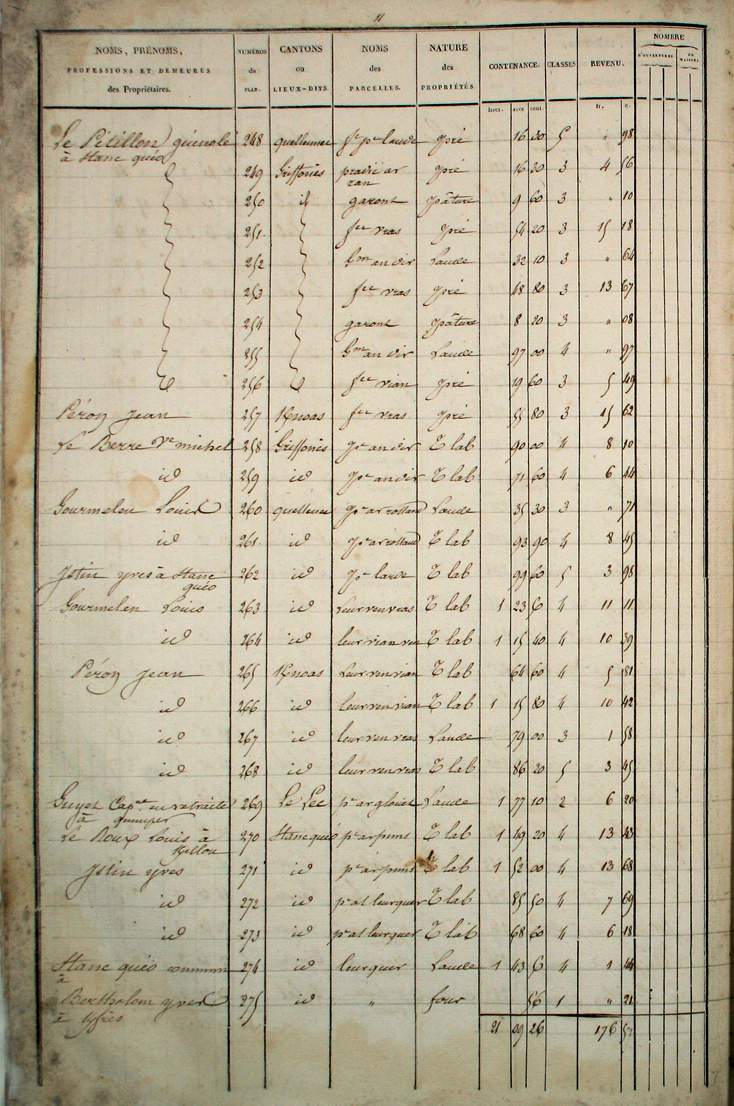 11
NOMS, PRÉNOMS, PROFESSIONS ET DEMEURES des Propriétaires. NUMÉROS du PLAN. CANTONS ou LIEUX-DITS. NOMS des PARCELLES. NATURE des PROPRIÉTÉS. CONTENANCE. CLASSES REVENU. NOMBRE D'OUVERTURES DE MAISONS
hect. ares cent. fr. c.
Le Pétillon guenolé 248 quellenec pré 16 00 5 " 98
à Stanc quéo
249 Griffonès prat ar 16 20 3 4 56
250 id garont pâture 9 60 3 " 10
251 fec vras pré 54 20 3 15 18
252 an dir Lande 32 10 3 " 64
253 fec vras pré 48 80 3 13 67
254 garont pâture 8 20 3 " 08
255 an dir Lande 97 00 4 " 97
256 fec vian pré 19 60 3 5 49
Péron jean 257 Knoas fec vras pré 55 80 3 15 62
Le Berre Ve michel 258 Griffonès an dir T lab 90 00 4 8 10
id 259 id an dir T lab 71 60 4 6 44
Gourmelen Louis 260 quellenec Lande 35 30 3 " 71
id 261 id T lab 93 90 4 8 45
Jstin yves à Stanc 262 id T lab 99 60 5 3 98
quéo
Gourmelen Louis 263 id leur ven vras T lab 1 23 50 4 11 11
id 264 id leur vian ven T lab 1 15 40 4 10 39
Péron jean 265 Knoas leur ven vian T lab 64 60 4 5 81
id 266 id leur ven vian T lab 1 15 80 4 10 42
id 267 id leur ven vras Lande 79 00 3 1 58
id 268 id leur ven vras T lab 86 20 5 3 45
Guyet Capne en retraite 269 Le Lec Lande 1 77 10 2 6 20
à quimper
Le Roux Louis à 270 Stanc quéo pc ar puns T lab 1 49 20 4 13 43
Jstin yves 271 id pc ar puns T lab 1 52 00 4 13 68
id 272 id leurguer T lab 85 50 4 7 69
id 273 id leurguer T lab 68 60 4 6 18
Stanc quéo commun 274 id leurguer Lande 1 43 50 4 1 44
à
Bertholom yves 275 id " four 56 1 " 21
à
21 09 26 176 57